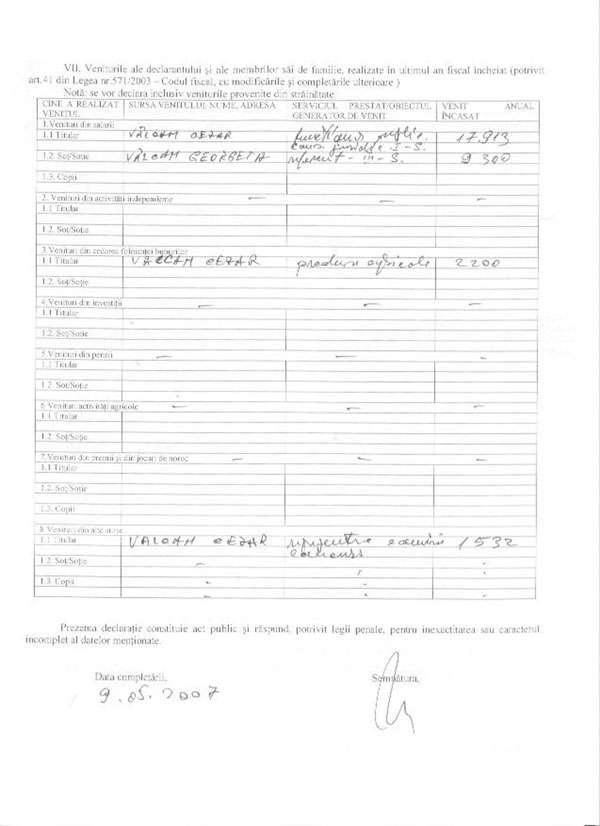 VII. Veniturile ale declarantului şi ale membrilor săi de familie, realizate în ultimul an fiscal încheiat (potrivit
art.41 din Legea nr.571/2003 – Codul fiscal, cu modificările şi completările ulterioare )
Notă: se vor declara inclusiv veniturile provenite din străinătate
CINE A REALIZAT VENITUL SURSA VENITULUI NUME, ADRESA SERVICIUL PRESTAT/OBIECTUL GENERATOR DE VENIT VENIT ANUAL ÎNCASAT
1.Venituri din salarii
1.1 Titular CEZAR public 17.913
1.2. Soţ/Soţie GEORGETA referent - III - S. 9 300
1.3. Copii
2. Venituri din activităţi independente — — —
1.1 Titular
1.2. Soţ/Soţie
3.Venituri din cedarea folosinţei bunurilor
1.1 Titular CEZAR produse agricole 2200
1.2. Soţ/Soţie
4.Venituri din investiţii — — —
1.1 Titular
1.2. Soţ/Soţie
5.Venituri din pensii — — -
1.1 Titular
1.2. Soţ/Soţie
6.Venituri activităţi agricole — — —
1.1 Titular
1.2. Soţ/Soţie
7.Venituri din premii şi din jocuri de noroc — — —
1.1 Titular
1.2. Soţ/Soţie
1.3. Copii
8.Venituri din alte surse
1.1 Titular CEZAR 1532
1.2. Soţ/Soţie
1.3. Copii
Prezenta declaraţie constituie act public şi răspund, potrivit legii penale, pentru inexactitatea sau caracterul
incomplet al datelor menţionate.
Data completării, Semnătura,
9.05.2007